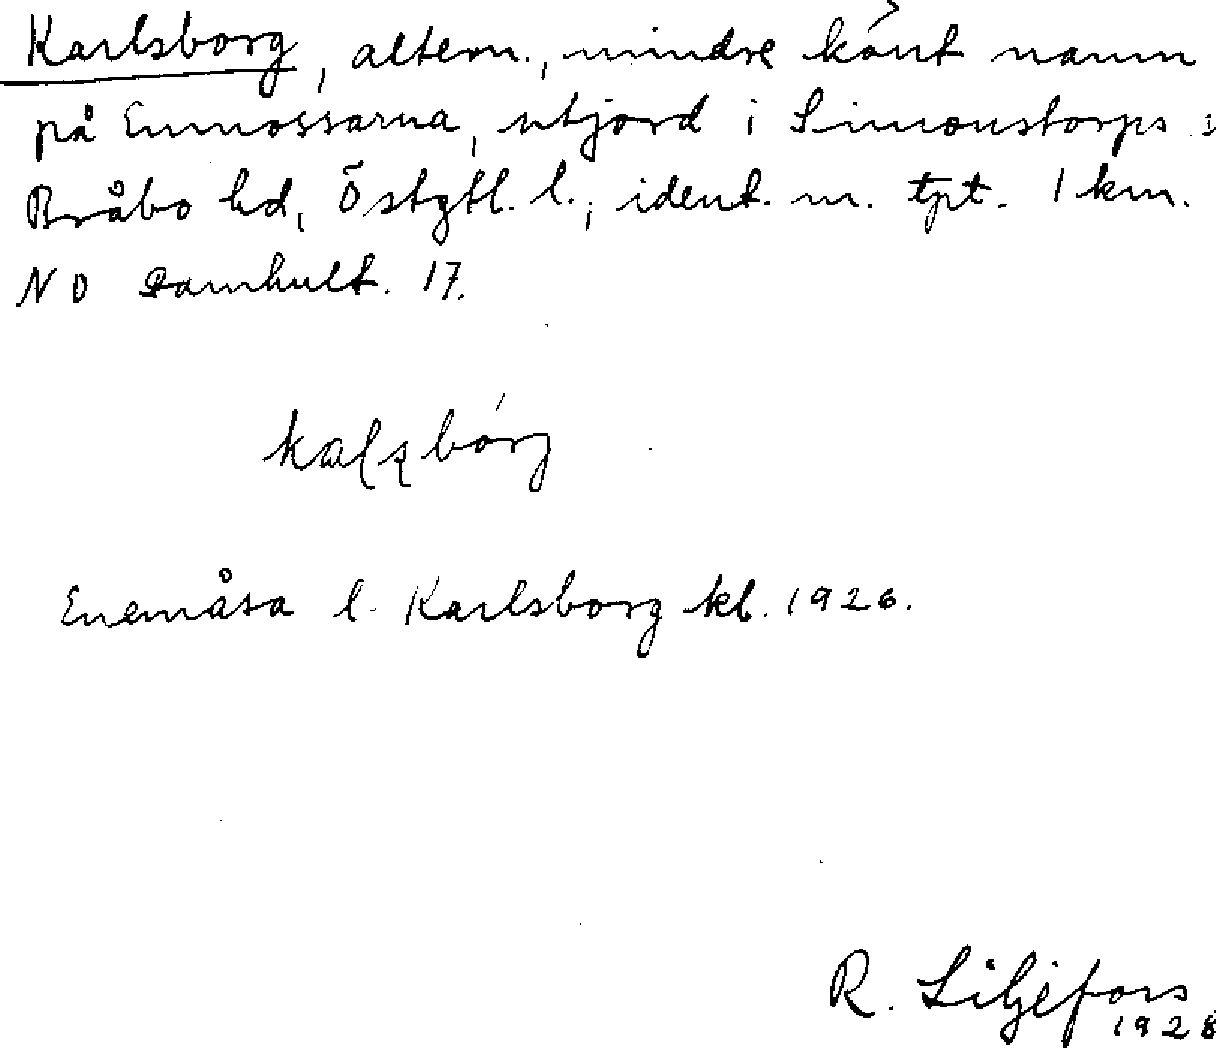 Karlsborg, altern., mindre känt namn
på Enmossarna, utjord i Simonstorps s
Bråbo hd, Östgtl. l., ident. m. tpt. 1 km.
NO Damhult. 17.
Enemåsa l. Karlsborg kb. 1926.
R. Liljefors
1928